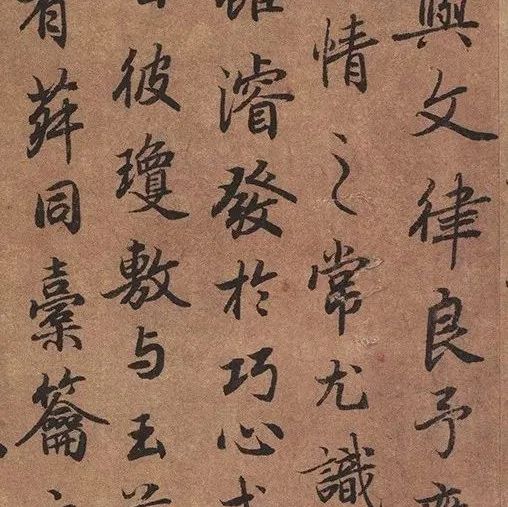 與文律良予
情之常尤識
雖濬發於巧心
彼瓊敷与玉
有菽同橐籥